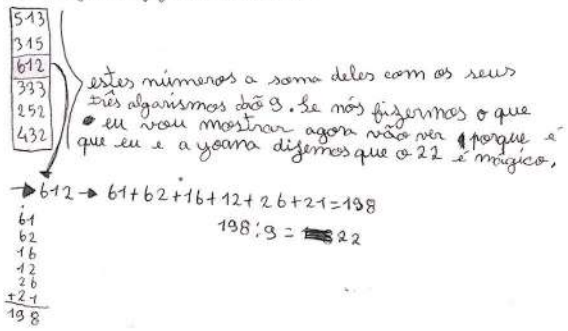 513
315
612
333
252
432
estes números a soma deles com os seus
três algarismos dão 9. Se nós fizermos o que
eu vou mostrar agora vão ver porque é
que eu e a yoana dizemos que o 22 é mágico,
612 → 61+62+16+12+26+21=198
198:9= 22
61
62
16
12
26
+21
198